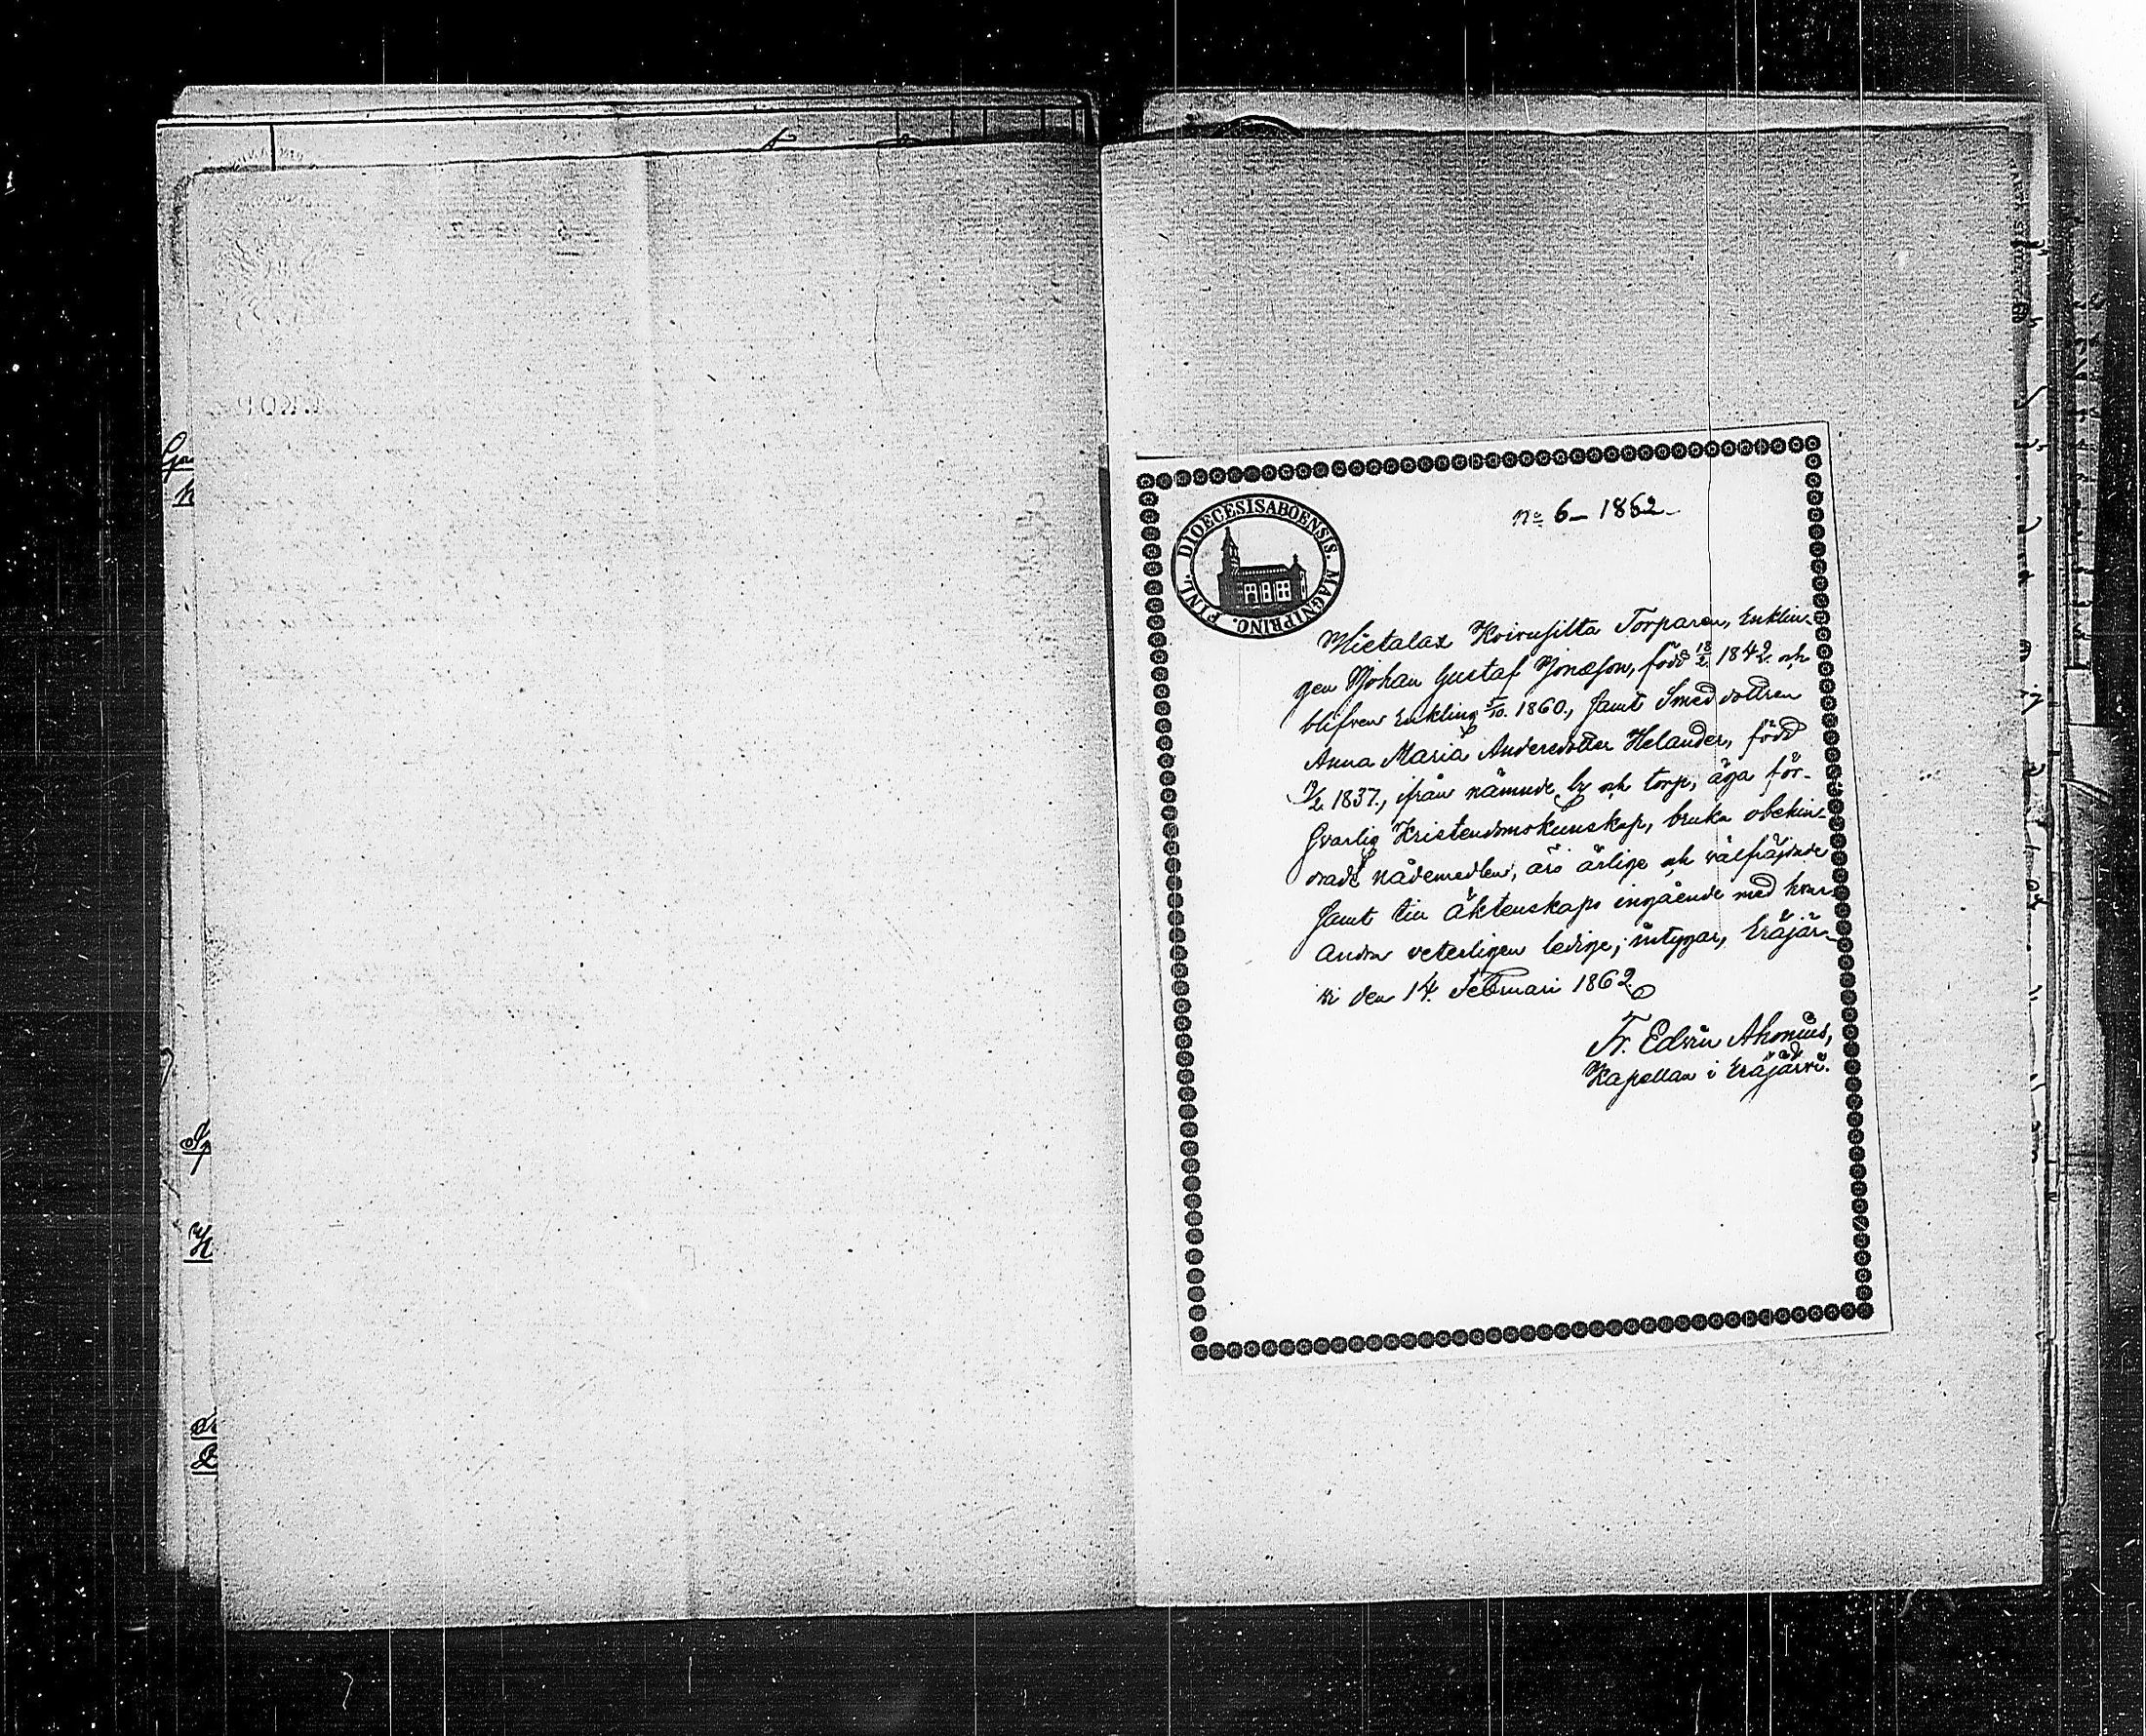 No 6 - 1862.
DIOECESIS ABOENSIS. MAGNI PRINC. FINL.
Wietalax Koivusilta Torparen, Enklin-
gen Johan Gustaf Jonasson, född 18/2 1842. och
blifven Enkling 5/10. 1860., samt Smedsdottren
Anna Maria Andersdotter Helander, född
1837., ifrån nämnde by och torp, äga för-
svarlig Kristendomskunskap, bruka obehin-
rade nådemedlen, äro ärlige och välfräjdade
samt till äktenskaps ingående med hvar-
andra veterligen ledige; intygar, Eräjär-
vi den 14. Februari 1862.
Fr. Edvin Ahonius,
Kapellan i Eräjärvi.